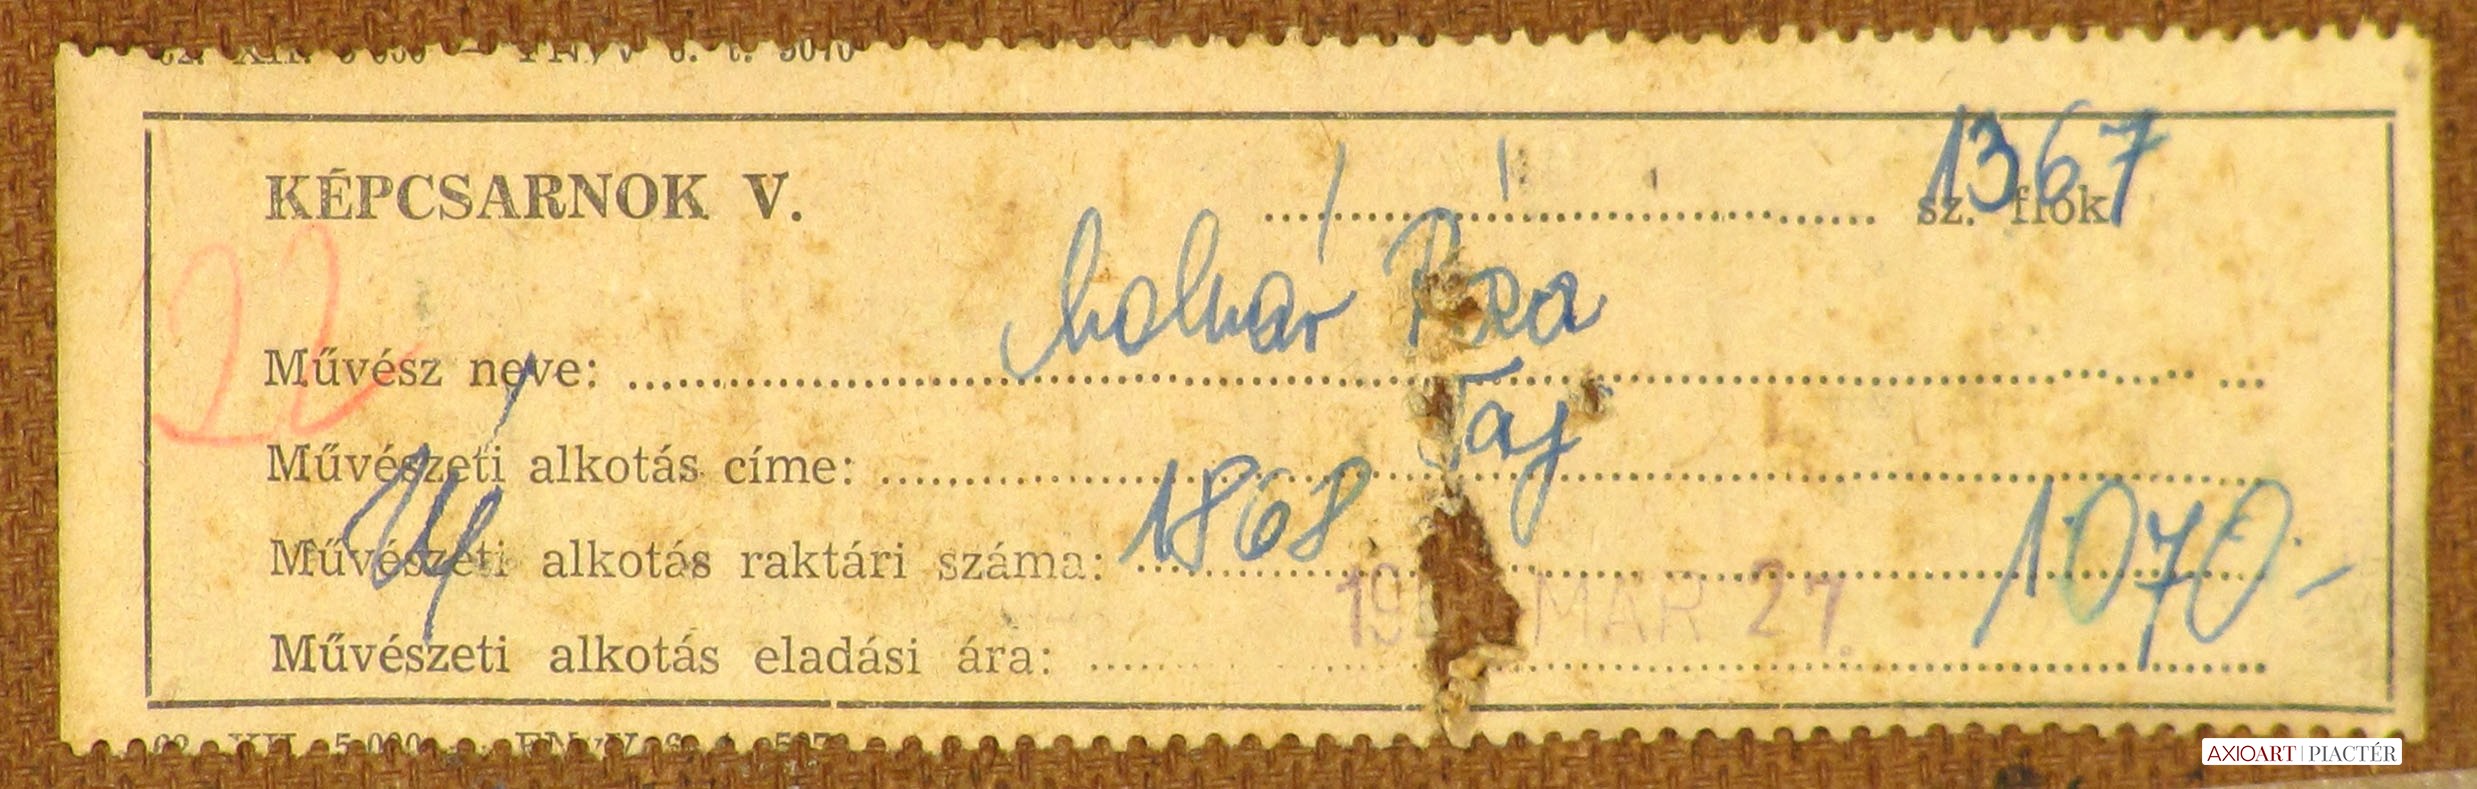 KÉPCSARNOK V. .......... sz. fiók
1367
22
Művész neve: Molnár Róza
Művészeti alkotás címe: Táj
Művészeti alkotás raktári száma: 1868
1070.-
19 MAR 27.
Művészeti alkotás eladási ára:
62. XII. 5 000 — FNyV 6. t.
AXIOART | PIACTÉR